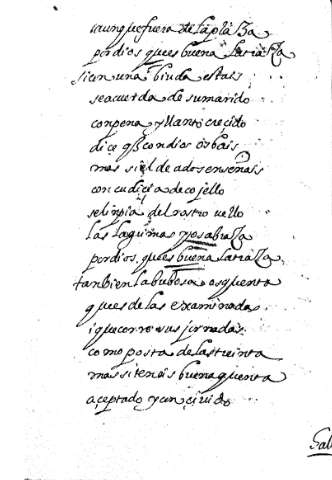 y aunque fuera de la plaza
por dios ques buena la traza
si en una biuda estais
se acuerda de su marido
con pena y llanto crecido
dice q̃ con dios os bais
mas si el de ados enseñais
con cudiçia de cojello
se linpia del rostro vello
las lagrimas y os abraza
por dios ques buena la traza
tanbien la bubosa os quenta
ques de las examinadas
i que corre sus jornadas
como posta de las treinta
mas si teneis buena quenta
açeptado